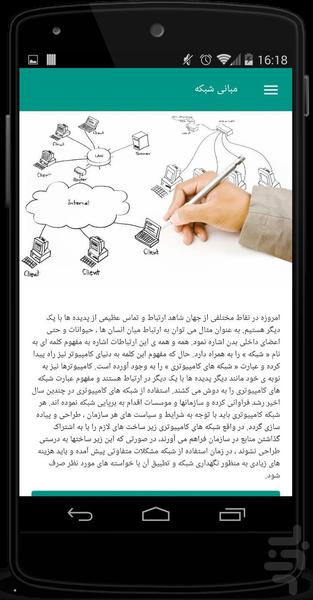 16:18
مبانی شبکه
Client
Client
LAN
Client
Server
Router
Internet
Client
Client
Client
امروزه در نقاط مختلفی از جهان شاهد ارتباط و تماس عظیمی از پدیده ها با یک
دیگر هستیم. به عنوان مثال می توان به ارتباط میان انسان ها ، حیوانات و حتی
اعضای داخلی بدن اشاره نمود. همه و همه ی این ارتباطات اشاره به مفهوم کلمه ای به
نام « شبکه » را به همراه دارد. حال که مفهوم این کلمه به دنیای کامپیوتر نیز راه پیدا
کرده و عبارت « شبکه های کامپیوتری » را به وجود آورده است. کامپیوترها نیز به
نوبه ی خود مانند دیگر پدیده ها با یک دیگر در ارتباط هستند و مفهوم عبارت شبکه
های کامپیوتری را به دوش می کشند. استفاده از شبکه های کامپیوتری در چندین سال
اخیر رشد فراوانی کرده و سازمانها و موسسات اقدام به برپایی شبکه نموده اند. هر
شبکه کامپیوتری باید با توجه به شرایط و سیاست های هر سازمان ، طراحی و پیاده
سازی گردد. در واقع شبکه های کامپیوتری زیر ساخت های لازم را با به اشتراک
گذاشتن منابع در سازمان فراهم می آورند، در صورتی که این زیر ساختها به درستی
طراحی نشوند ، در زمان استفاده از شبکه مشکلات متفاوتی پیش آمده و باید هزینه
های زیادی به منظور نگهداری شبکه و تطبیق آن با خواسته های مورد نظر صرف
شود.
بازار